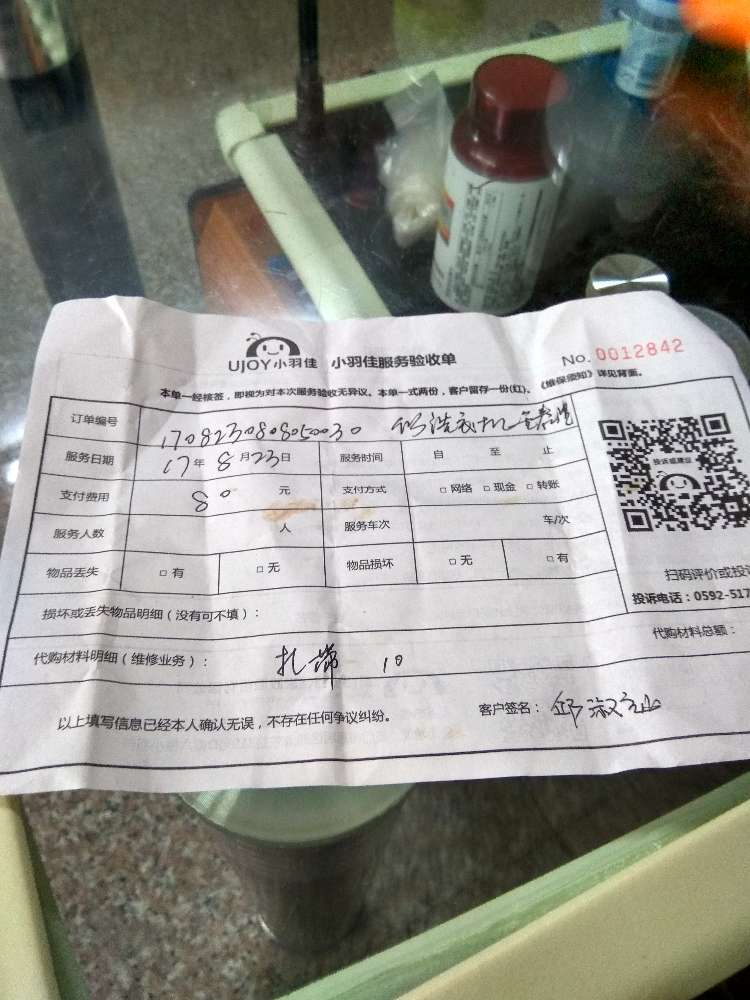 UJOY小羽佳 小羽佳服务验收单 No. 0012842
本单一经核签，即视为对本次服务验收无异议。本单一式两份，客户留存一份(红)。《维保须知》详见背面。
订单编号 170823080850030
服务日期 17年8月23日 服务时间 自 至 止
支付费用 80 元 支付方式 □ 网络 □ 现金 □ 转账
服务人数 人 服务车次 车/次
物品丢失 □ 有 □ 无 物品损坏 □ 无 □ 有
投诉或建议
扫码评价或投
投诉电话：0592-517
损坏或丢失物品明细（没有可不填）：
代购材料明细（维修业务）： 扎带 10 代购材料总额：
以上填写信息已经本人确认无误，不存在任何争议纠纷。 客户签名： 邱淑